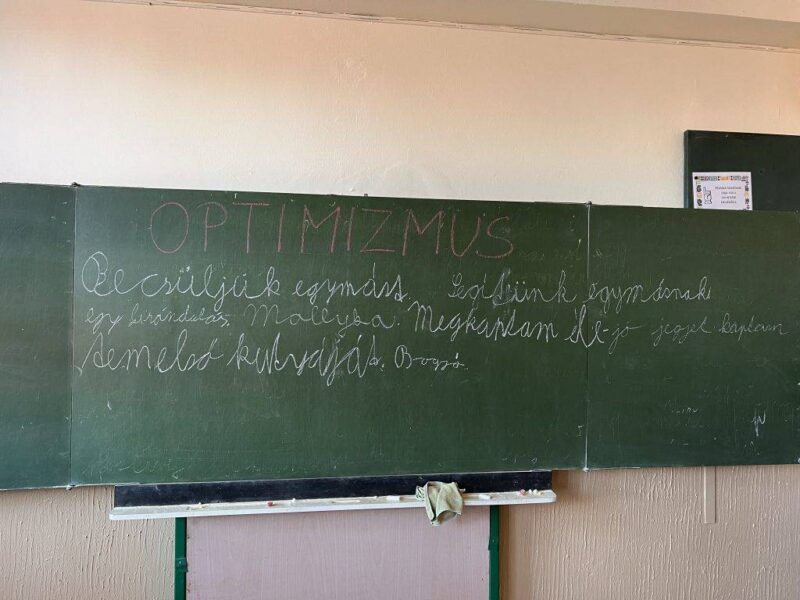 OPTIMIZMUS
Becsüljük egymást. Segítsünk egymásnak
egy kirándulás, Megkaptam éle- jó jegyet kaptam
tem első kutyáját.